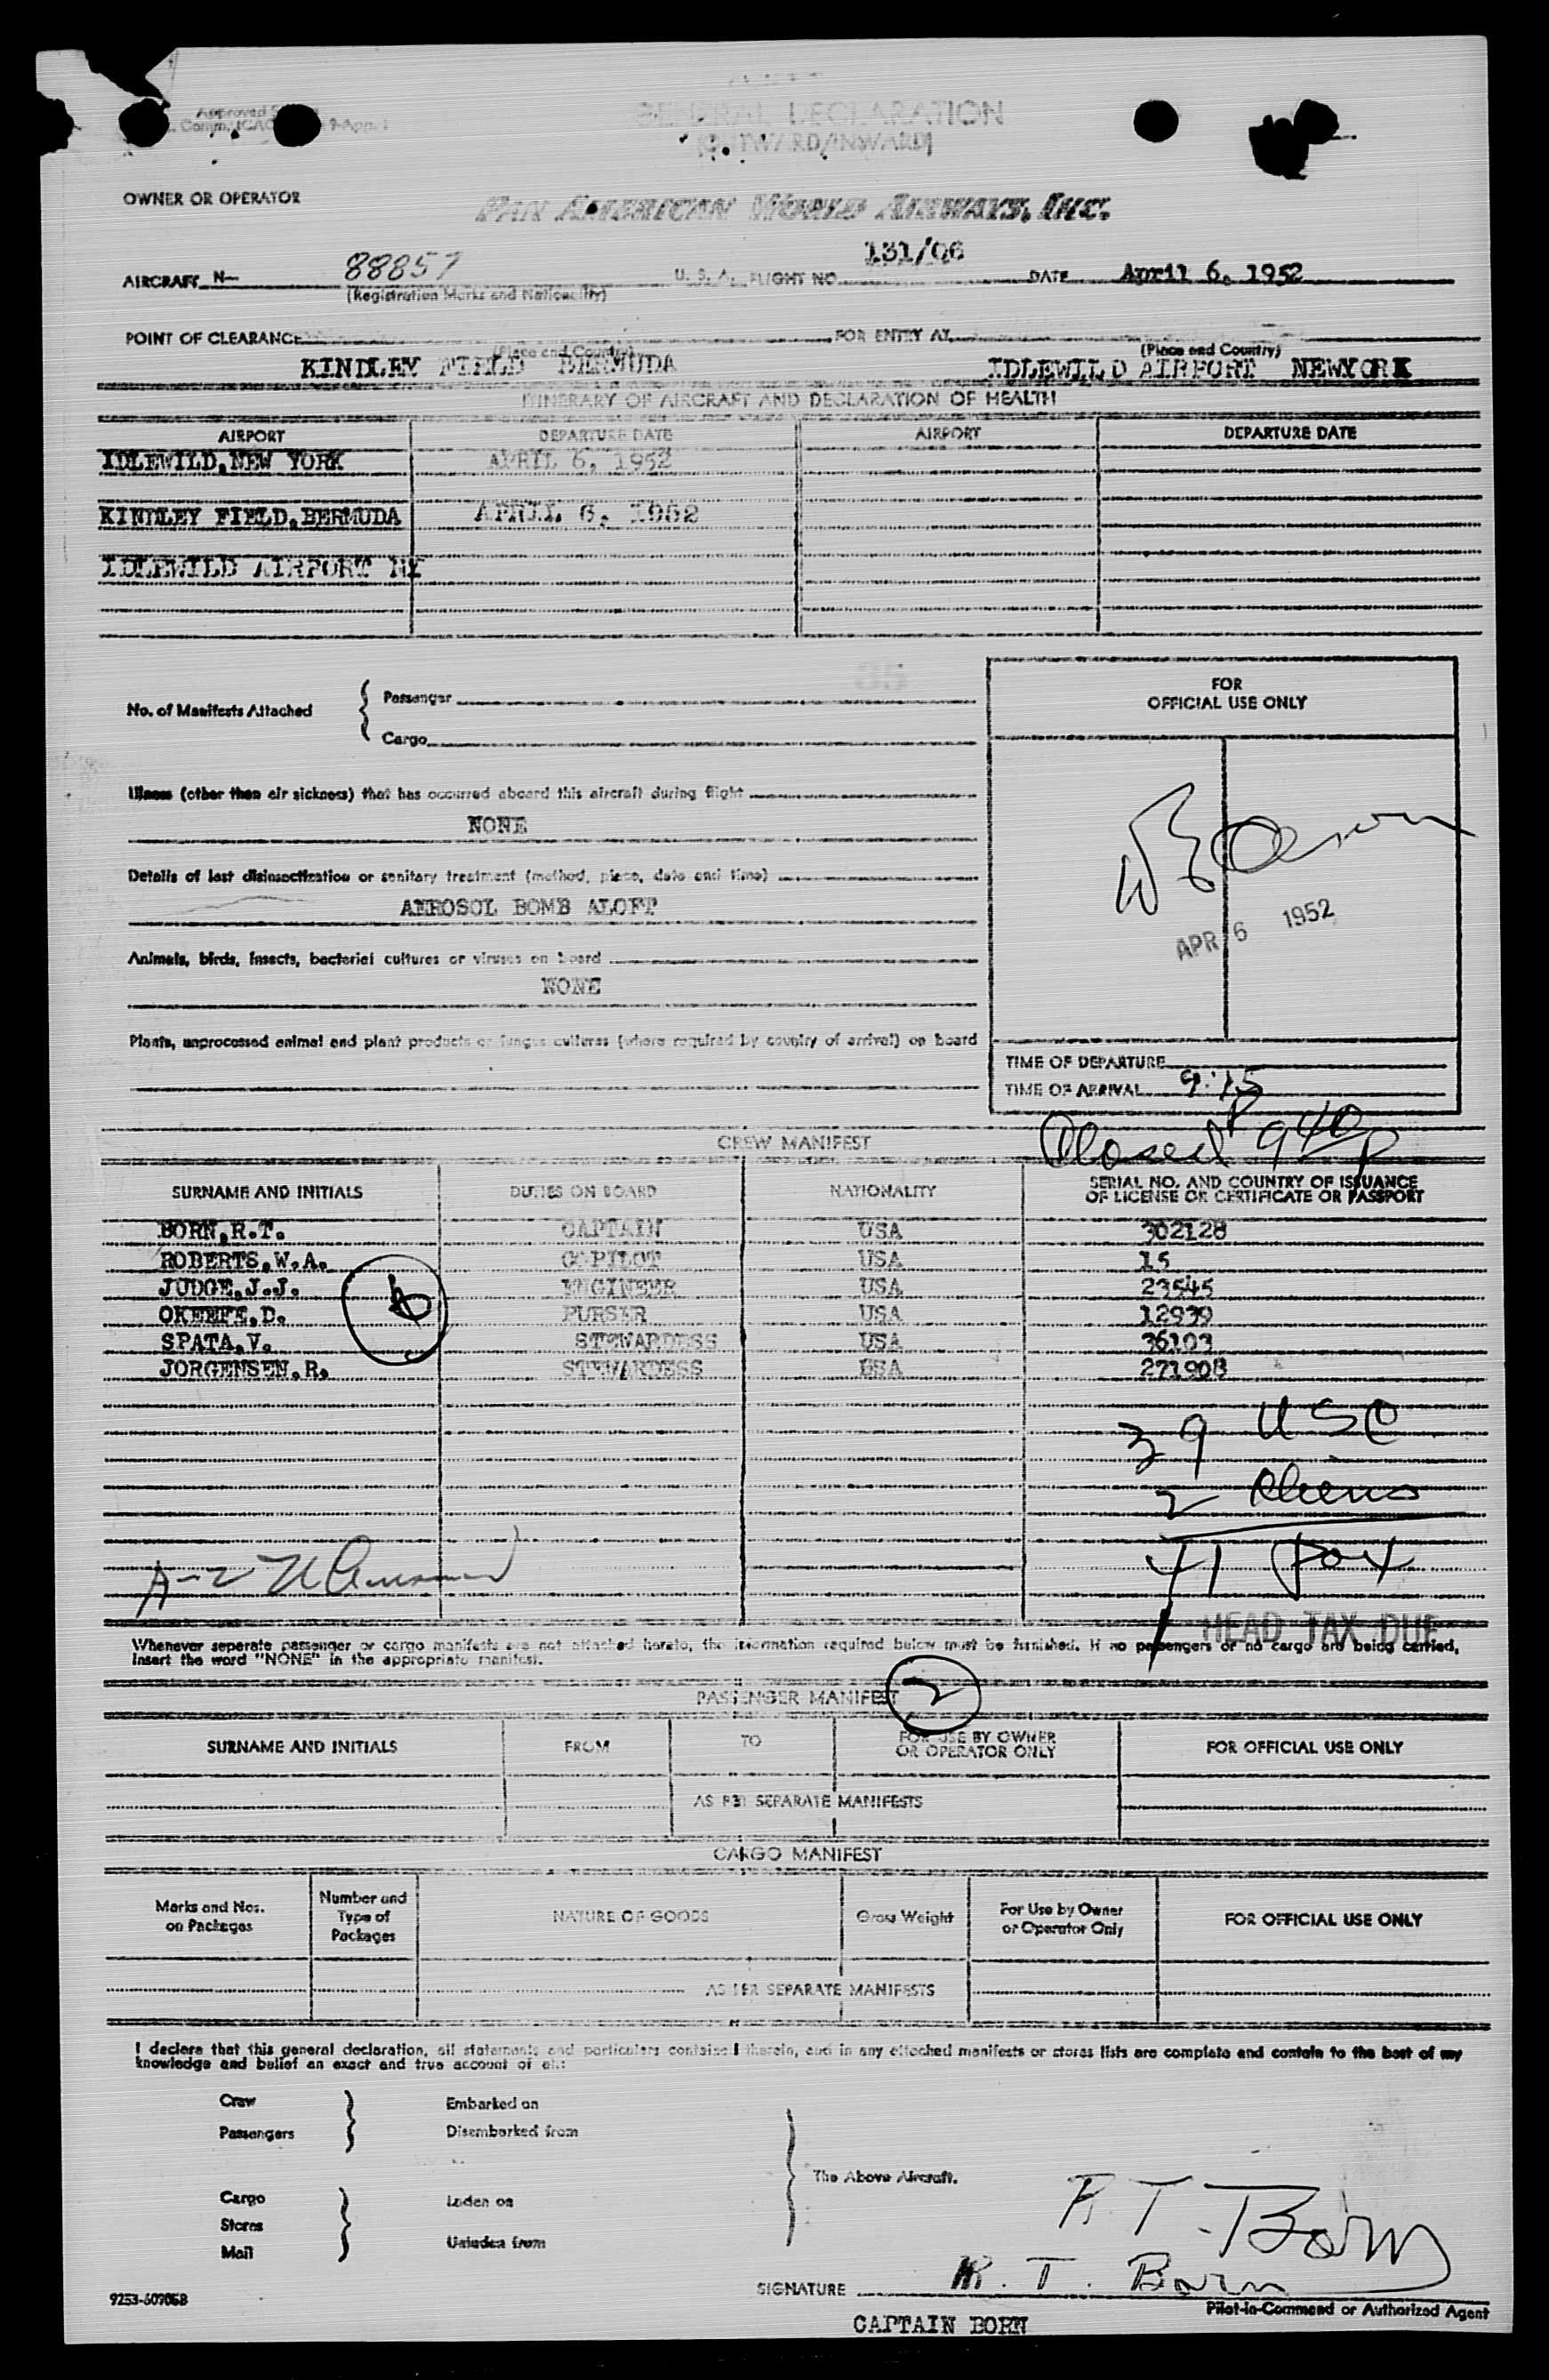 Approved
GENERAL DECLARATION
(OUTWARD/INWARD)
OWNER OR OPERATOR
PAN AMERICAN WORLD AIRWAYS, INC.
AIRCRAFT N- 88857 U. S. A. FLIGHT NO 131/06 DATE April 6, 1952
(Registration Marks and Nationality)
POINT OF CLEARANCE FOR ENTRY AT
(Place and Country) (Place and Country)
KINDLEY FIELD BERMUDA IDLEWILD AIRPORT NEWYORK
ITINERARY OF AIRCRAFT AND DECLARATION OF HEALTH
AIRPORT DEPARTURE DATE AIRPORT DEPARTURE DATE
IDLEWILD,NEW YORK APRIL 6, 1952
KINDLEY FIELD,BERMUDA APRIL 6, 1952
IDLEWILD AIRPORT NY
35
FOR
OFFICIAL USE ONLY
No. of Manifests Attached
Passenger
Cargo
Illness (other than air sickness) that has occurred aboard this aircraft during flight
NONE
Details of last disinsectization or sanitary treatment (method, place, date and time)
AEROSOL BOMB ALOFT
APR 6 1952
Animals, birds, insects, bacterial cultures or viruses on board
NONE
Plants, unprocessed animal and plant products or fungus cultures (where required by country of arrival) on board
TIME OF DEPARTURE
TIME OF ARRIVAL 9:15
P
Closed 9 40 P
CREW MANIFEST
SURNAME AND INITIALS DUTIES ON BOARD NATIONALITY SERIAL NO. AND COUNTRY OF ISSUANCE
OF LICENSE OR CERTIFICATE OR PASSPORT
BORN,R.T. CAPTAIN USA 302128
ROBERTS,W.A. COPILOT USA 15
JUDGE,J.J. ENGINEER USA 23545
OKEEFE,D. PURSER USA 12939
SPATA,V. STEWARDESS USA 36103
JORGENSEN,R. STEWARDESS USA 271908
6
39 USC
2 Aliens
41 pax
HEAD TAX DUE
Whenever seperate passenger or cargo manifests are not attached hereto, the information required below must be furnished. If no passengers or no cargo are being carried,
insert the word "NONE" in the appropriate manifest.
2
PASSENGER MANIFEST
SURNAME AND INITIALS FROM TO FOR USE BY OWNER
OR OPERATOR ONLY FOR OFFICIAL USE ONLY
AS PER SEPARATE MANIFESTS
CARGO MANIFEST
Marks and Nos.
on Packages
Number and
Type of
Packages
NATURE OF GOODS
Gross Weight
For Use by Owner
or Operator Only
FOR OFFICIAL USE ONLY
AS PER SEPARATE MANIFESTS
I declare that this general declaration, all statements and particulars contained therein, and in any attached manifests or stores lists are complete and contain to the best of my
knowledge and belief an exact and true account of all:
Crew Embarked on
Passengers Disembarked from
The Above Aircraft.
Cargo Laden on
Stores
Mail Unladen from
R. T. Born
SIGNATURE R. T. Born
9253-607058 Pilot-in-Command or Authorized Agent
CAPTAIN BORN